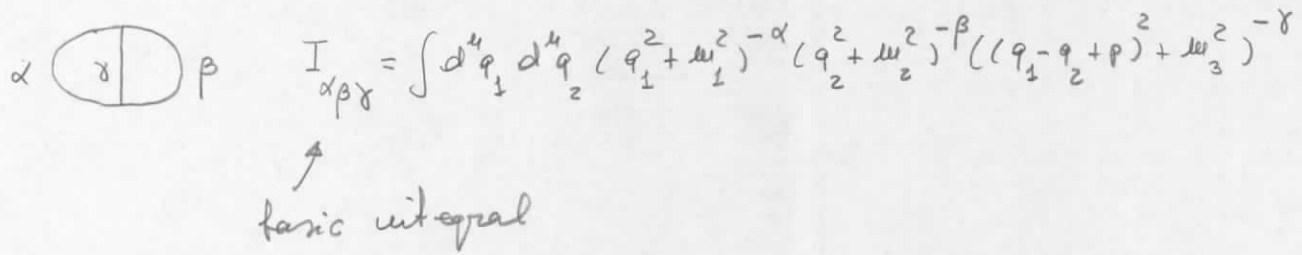 α γ β I_{αβγ} = ∫ d⁴q₁ d⁴q₂ (q₁² + m₁²)^{-α} (q₂² + m₂²)^{-β} ((q₁ - q₂ + p)² + m₃²)^{-γ}
basic integral